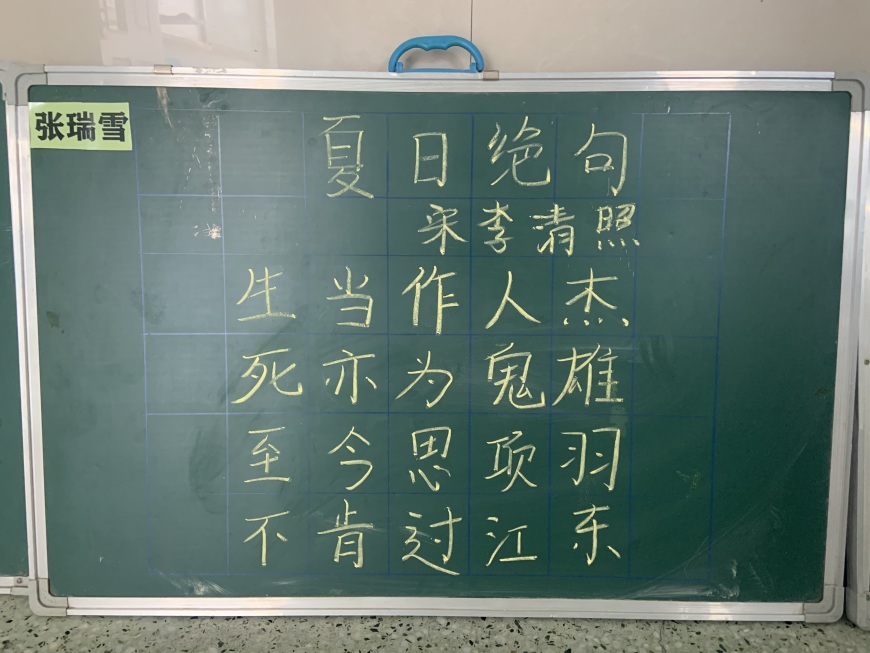 张瑞雪
夏日绝句
宋李清照
生当作人杰
死亦为鬼雄
至今思项羽
不肯过江东